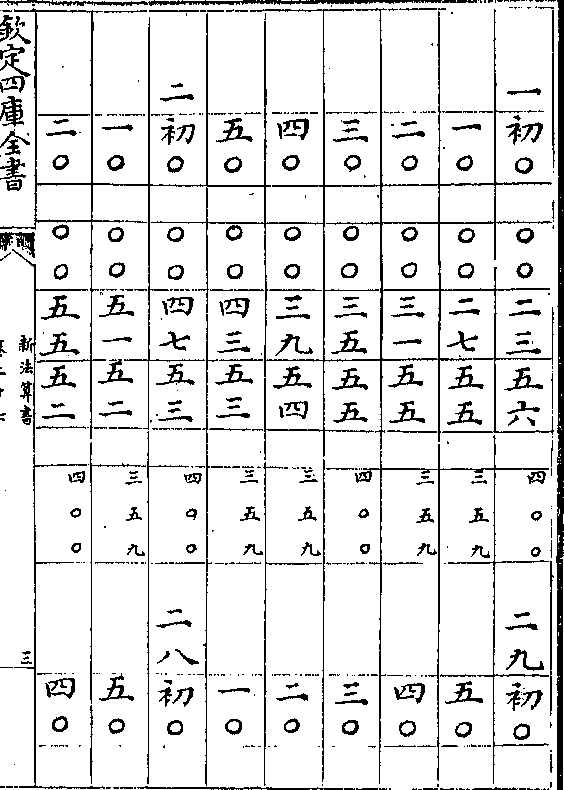 一初〇 〇〇 二三五六 四〇〇 二九初〇
一〇 〇〇 二七五五 三五九 五〇
二〇 〇〇 三一五五 三五九 四〇
三〇 〇〇 三五五五 四〇〇 三〇
四〇 〇〇 三九五四 三五九 二〇
五〇 〇〇 四三五三 三五九 一〇
二初〇 〇〇 四七五三 四〇〇 二八初〇
一〇 〇〇 五一五二 三五九 五〇
二〇 〇〇 五五五二 四〇〇 四〇
欽定四庫全書
新法算書
三